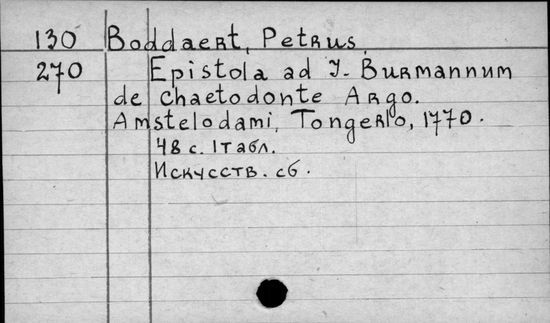 130 Boddaert, Petrus.
270 Epistola ad J. Burmannum
de chaetodonte Argo.
Amstelodami, Tongerlo, 1770.
48 с. 1 табл.
Искусств. сб.